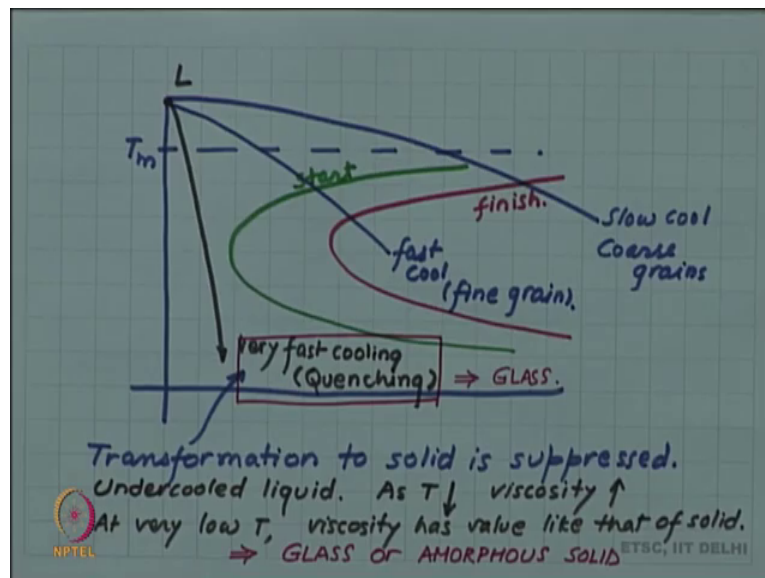 L
Tm
start
finish.
slow cool
Coarse
grains
fast
cool
(fine grain).
very fast cooling
(Quenching) ⇒ GLASS.
Transformation to solid is suppressed.
Undercooled liquid. As T↓ viscosity ↑
At very low T, viscosity has value like that of solid.
⇒ GLASS or AMORPHOUS SOLID
NPTEL
ETSC, IIT DELHI